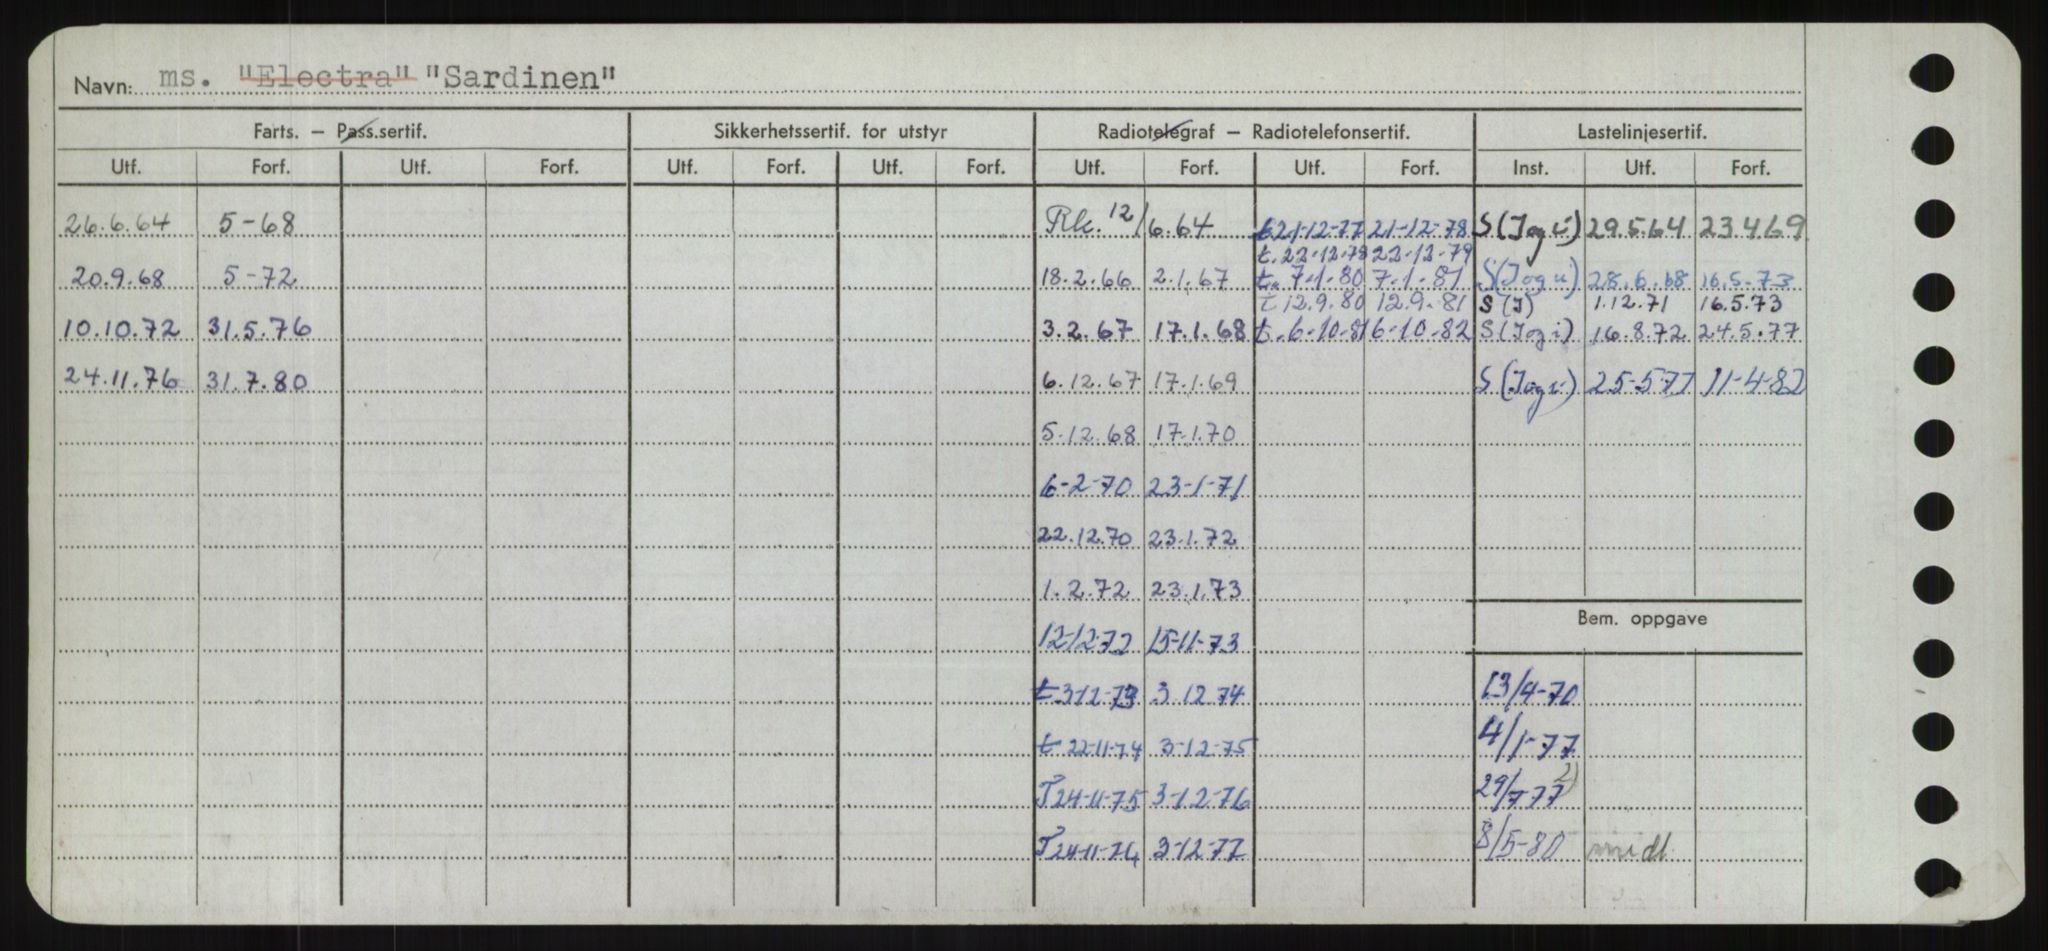 Navn: ms. "Electra" "Sardinen"
Farts. – Pass.sertif. Sikkerhetssertif. for utstyr Radiotelegraf – Radiotelefonsertif. Lastelinjesertif.
Utf. Forf. Utf. Forf. Utf. Forf. Utf. Forf. Utf. Forf. Utf. Forf. Inst. Utf. Forf.
26.6.64 5-68 Rk. 12/6.64 t.21-12-77 21-12-78 S(Jog i) 29.5.64 23.4.69
t. 22-12-78 22-12-79
20.9.68 5-72 18.2.66 2.1.67 t. 7-1-80 7-1-81 S(Jog i) 28.6.68 16.5.73
t 12.9.80 12.9.81 S (J) 1.12.71 16.5.73
10.10.72 31.5.76 3.2.67 17.1.68 t.6-10-81 6-10-82 S(Jog i) 16.8.72 24.5.77
24.11.76 31.7.80 6.12.67 17.1.69 S (Jog i) 25-5-77 11-4-82
5.12.68 17.1.70
6-2-70 23-1-71
22.12.70 23.1.72
1.2.72 23.1.73
Bem. oppgave
12-12-72 15-11-73
t-3-12-73 3.12.74 13/4-70
t 22-11-74 3-12-75 4/1-77
T24-11-75 3-12-76 29/7-77 2)
T24-11-76 3-12-77 8/5-80 midl.